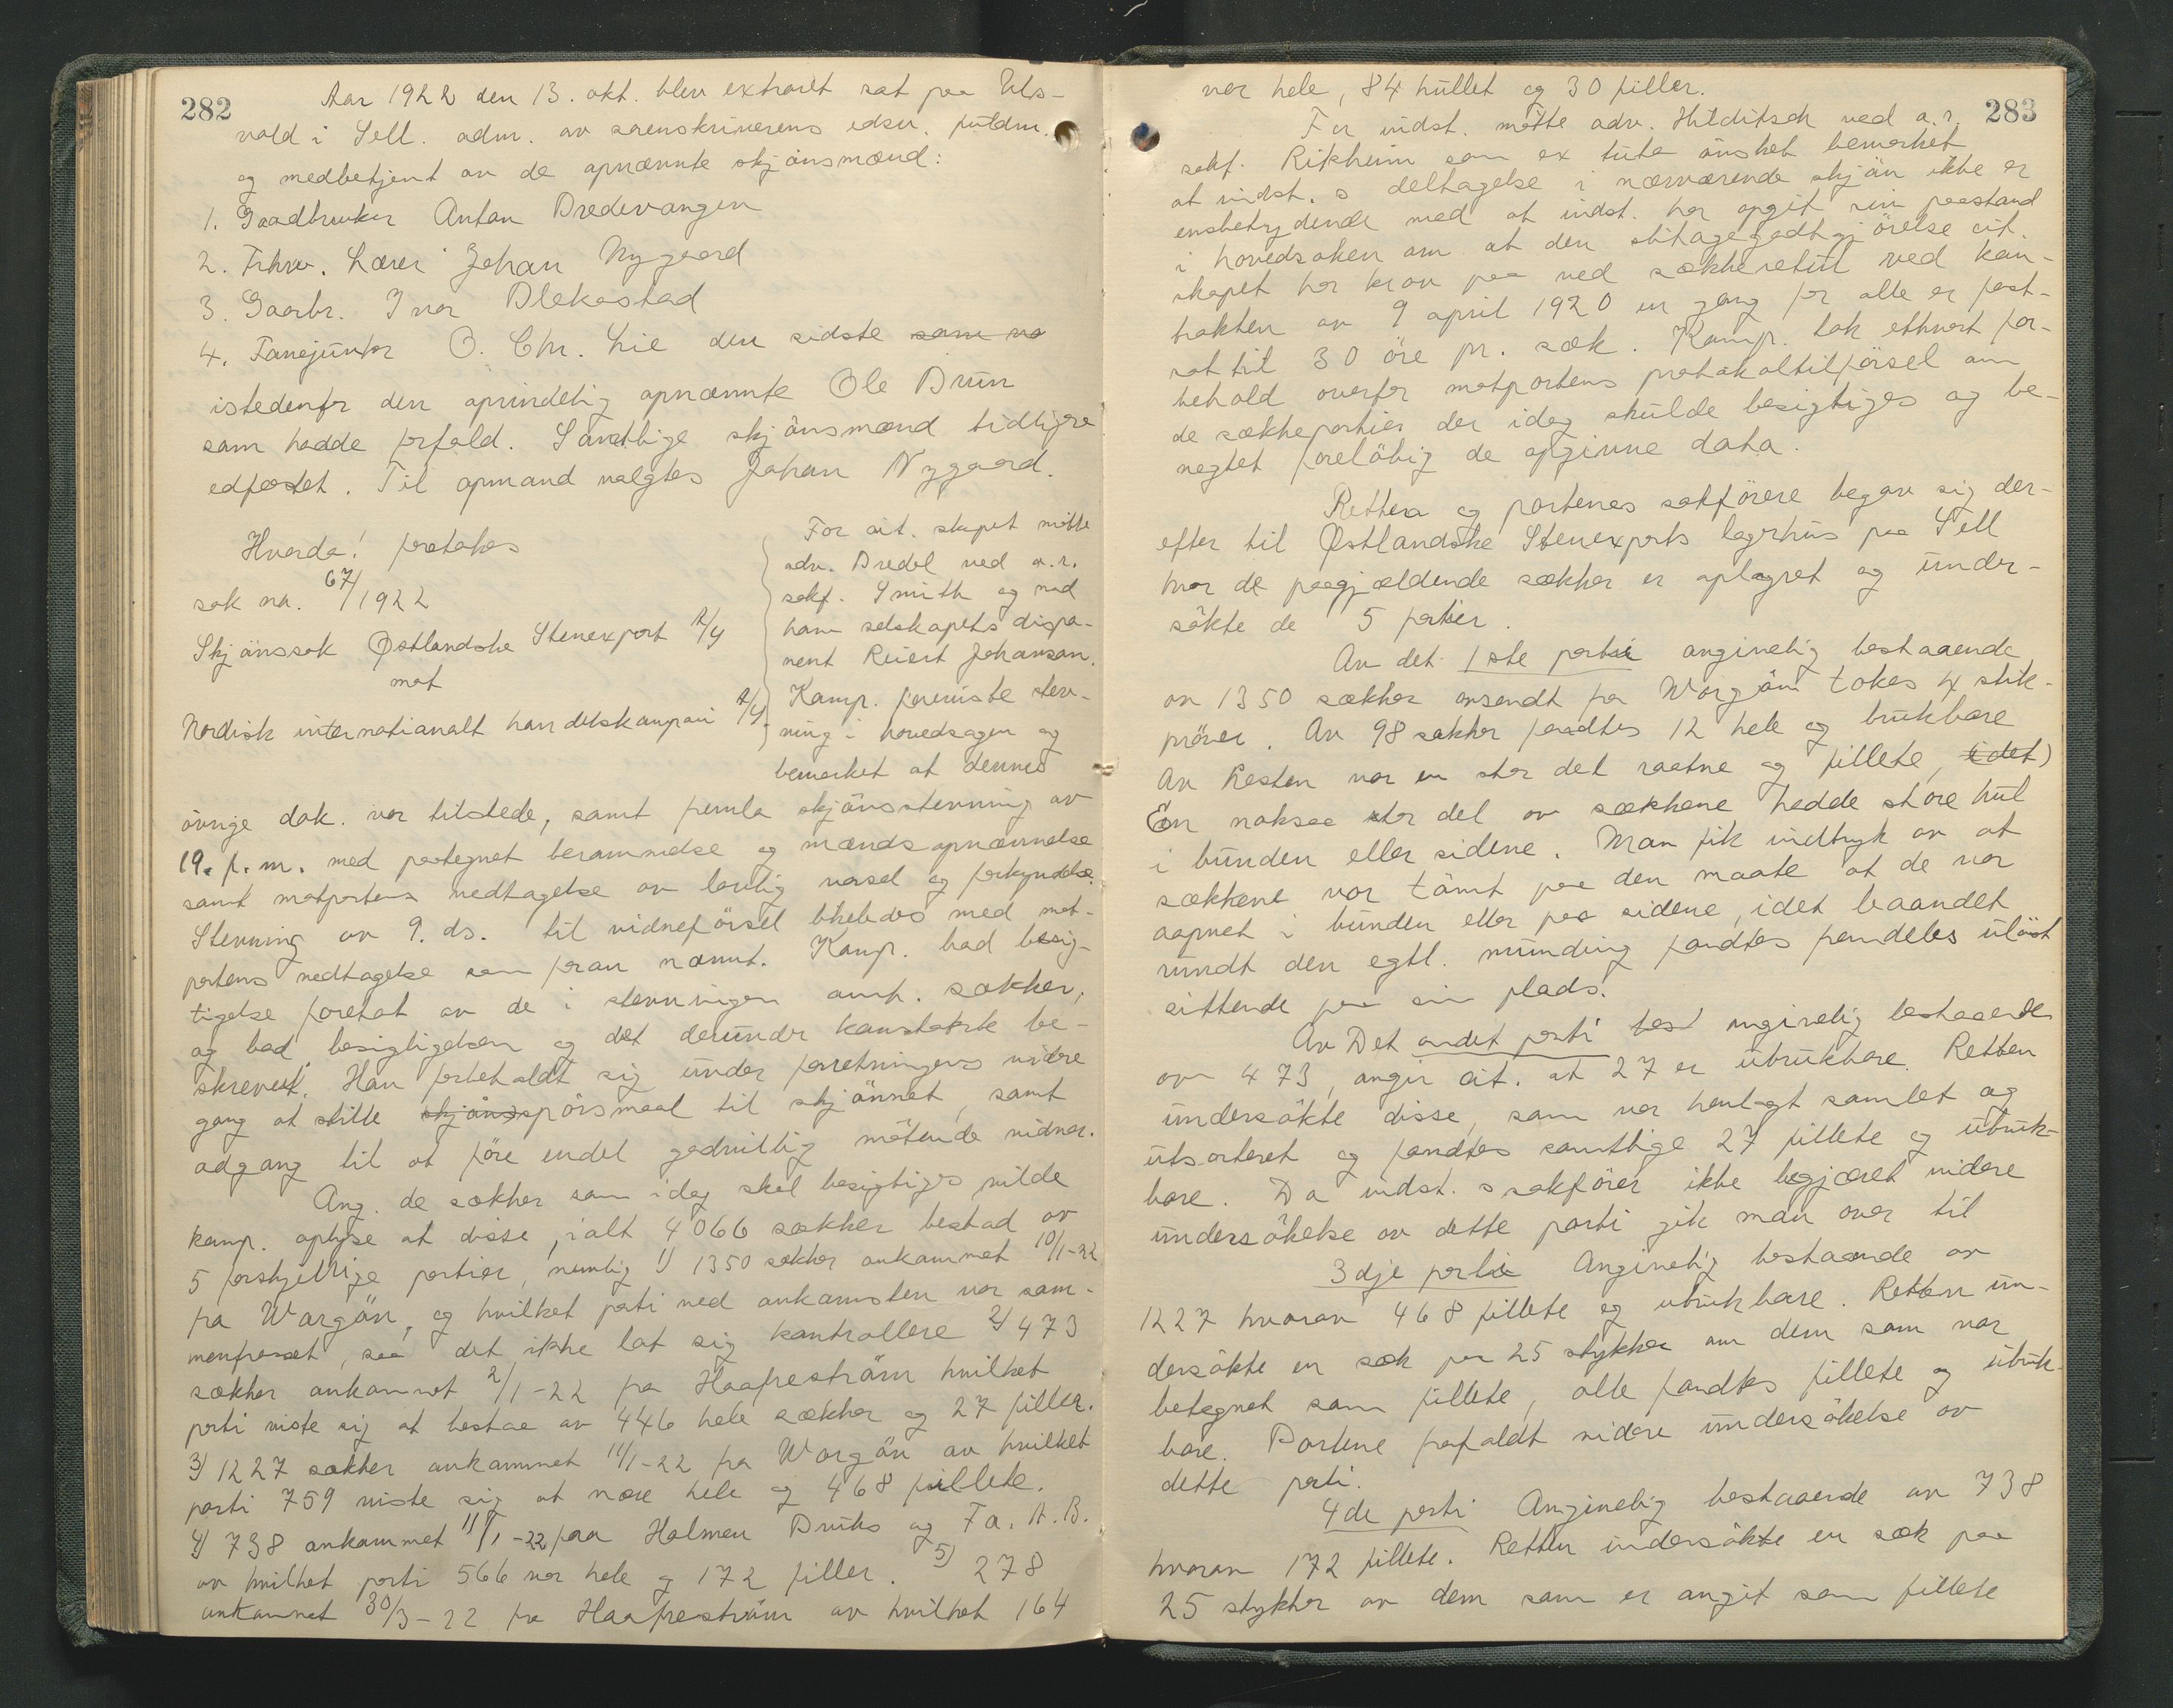 282
Aar 1922 den 13. okt. blev extraret sat paa Uls-
vold i Sell. adm. av sorenskriverens edsv. fuldm.
og medbetjent av de opnævnte skjönsmænd:
1. Gaardbruker Anton Bredevangen
2. Fhv. Lærer Johan Nygaard
3. Gaarbr. Ivar Blekastad
4. Fanejunker O. Chr. Lie den sidste som va
istedenfor den oprindelig opnævnte Ole Brun
som hadde forfald. Samtlige skjönsmænd tidligere
edfæstet. Til opmand valgtes Johan Nygaard.
Hvorda! foretokes
sak no. 67/1922
Skjönssak Østlandske Stenexport A/S
mot
Nordisk internationalt handelskompani A/S
For cit. skapet mötte
adv. Bredel ved o.r.
sakf. Smith og med
ham selskapets dispo-
nent Reiert Johanson.
Komp. fremviste stev-
ning i hovedsagen og
bemerket at dennes
övrige dok. var tilstede, samt fremla skjönsstevning av
19. f. m. med paategnet berammelse og mændsopnævnelse
samt motpartens vedtagelse av lovlig varsel og forkyndelse.
Stevning av 9. ds. til vidneförsel likeledes med mot-
partens vedtagelse som foran nævnt. Komp. bad besig-
tigelse foretat av de i stevningen omh. sækker,
og bad besigtigelsen og det derunder konstaterte be-
skrevet. Han forbeholdt sig under forretningens videre
gang at stille skjönsspörsmaal til skjönnet, samt
adgang til at före endel godvillig mötende vidner.
Ang. de sækker som idag skal besigtiges vilde
komp. oplyse at disse, ialt 4066 sækker bestod av
5 forskjellige partier, nemlig 1) 1350 sækker ankommet 10/1-22
fra Wargön, og hvilket parti ved ankomsten var sam-
menfrosset, saa det ikke lot sig kontrollere 2) 473
sækker ankommet 2/1-22 fra Haafreström hvilket
parti viste sig at bestaa av 446 hele sækker og 27 filler.
3) 1227 sækker ankommet 11/1-22 fra Wargön av hvilket
parti 759 viste sig at være hele og 468 fillete.
4) 738 ankommet 11/1-22 fra Holmen Bruks og Fa. A.B.
av hvilket parti 566 var hele og 172 filler. 5) 278
ankommet 30/3-22 fra Haafreström av hvilket 164
283
var hele, 84 hullet og 30 filler.
For indst. mötte adv. Hilditsch ved o.r.
sakf. Rikheim som ex tuto önsket bemerket
at indst.s deltagelse i nærværende skjön ikke er
ensbetydende med at indst. har opgit sin paastand
i hovedsaken om at den slitagegodtgjörelse cit.
skapet har krav paa ved sækkeretur ved kon-
trakten av 9 april 1920 en gang for alle er fast-
sat til 30 öre pr. sæk. Komp. tok ethvert for-
behold overfor motpartens protokoltilförsel om
de sækkepartier der idag skulde besigtiges og be-
negtet forelöbig de opgivne data.
Retten og partenes sakförere begav sig der-
efter til Østlandske Stenexports lagerhus paa Sell
hvor de paagjældende sækker er oplagret og under-
sökte de 5 partier.
Av det 1ste parti angivelig bestaaende
av 1350 sækker avsendt fra Wargön tokes 4 stik-
pröver. Av 98 sækker fandtes 12 hele og brukbare
Av Resten var en stor del raatne og fillete, idet)
En noksaa stor del av sækkene hadde store hul
i bunden eller sidene. Man fik indtryk av at
sækkene var tömt paa den maate at de var
aapnet i bunden eller paa sidene, idet baandet
rundt den egtl. munding fandtes fremdeles ulöst
sittende paa sin plads.
Av Det andet parti best angivelig bestaaende
av 473, angir cit. at 27 er ubrukbare. Retten
undersökte disse, som var henlagt samlet og
utsorteret og fandtes samtlige 27 fillete og ubruk-
bare. Da indst.s sakförer ikke begjæret videre
undersökelse av dette parti gik man over til
3dje parti Angivelig bestaaende av
1227 hvorav 468 fillete og ubrukbare. Retten un-
dersökte en sæk paa 25 stykker av dem som var
betegnet som fillete, alle fandtes fillete og ubruk-
bare. Partene frafaldt videre undersökelse av
dette parti.
4de parti Angivelig bestaaende av 738
hvorav 172 fillete. Retten undersökte en sæk paa
25 stykker av dem som er angit som fillete